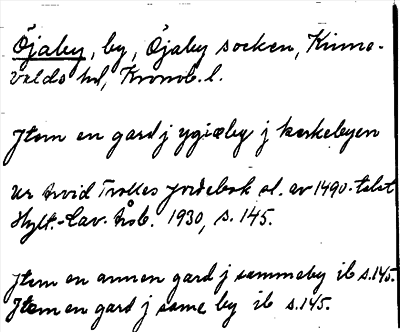 Öjaby, by, Öjaby socken, Kinne-
valds hd, Kronob. l.
Jtem en gard j ygiæby j kerkebyen
Ur Arvid Trolles jordebok sl. av 1490-talet
Hylt.-Cav. Årsb. 1930, s. 145.
Jtem en annen gard j sammeby ib s. 145.
Jtem en gard j same by ib s. 145.